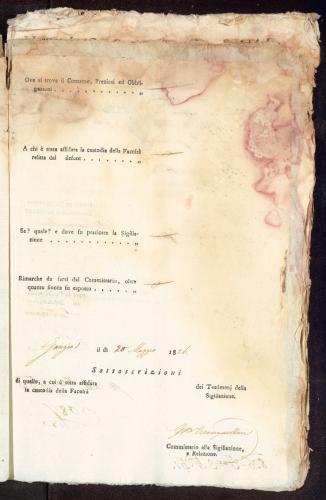 Ove si trova il Contante, Preziosi ed Obbli-
gazioni . . . . . . . . . . . . „
A chi è stata affidata la custodia della Facoltà
relitta dal defunt . . . . . . . „
Se? quale? e dove fu praticata la Sigilla-
zione . . . . . . . . . . . . „
Rimarche da farsi dal Commissario, oltre
quanto finora fu esposto . . . . . . „
il dì 20 Maggio 1826
Sottoscrizioni
di quello, a cui è stata affidata
la custodia della Facoltà
dei Testimonj della
Sigillazione.
Commissario alla Sigillazione,
e Relazione.